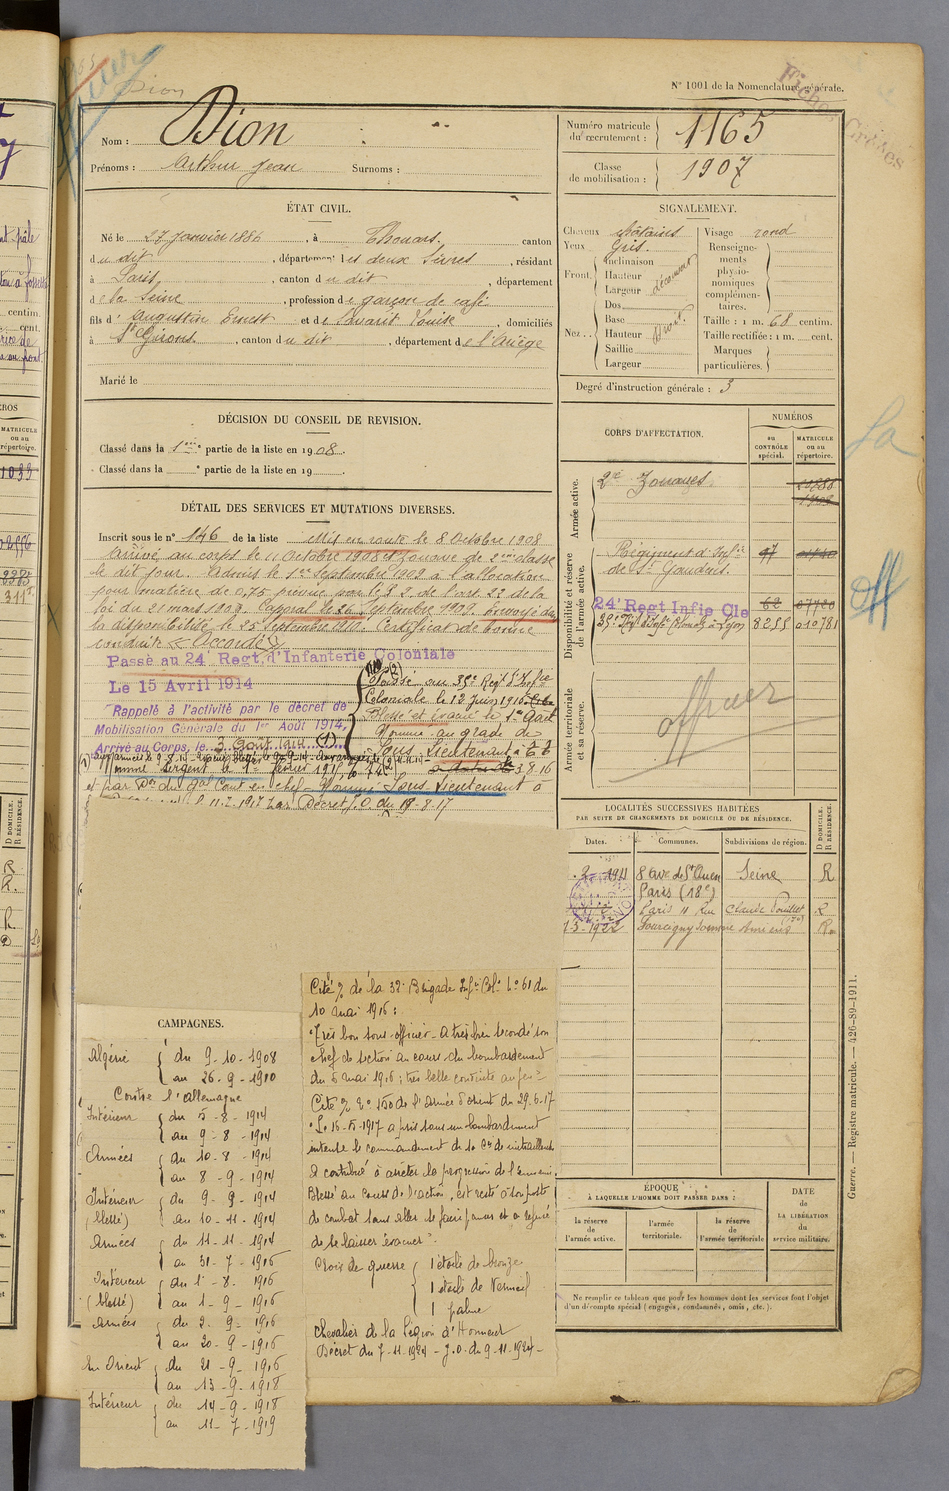 Nº 1001 de la Nomenclature générale.
Fiches
Dion
Nom : Dion
Prénoms : Arthur Jean Surnoms :
Numéro matricule du recrutement : 1165
Classe de mobilisation : 1907
ÉTAT CIVIL.
Né le 27 Janvier 1886, à Thouars, canton
du dit, département des deux Sèvres, résidant
à Paris, canton du dit, département
de la Seine, profession de garçon de café
fils d'Augustin Ernest et de Louise, domiciliés
à St Girons, canton du dit, département de l'Ariège
Marié le
SIGNALEMENT.
Cheveux châtains
Yeux Gris.
Front. Inclinaison
Hauteur
Largeur
découvert
Nez. Dos
Base
Hauteur
Saillie
Largeur
Visage rond
Renseignements physionomiques complémentaires.
Taille : 1 m. 68 centim.
Taille rectifiée : 1 m. cent.
Marques particulières.
Degré d'instruction générale : 3
DÉCISION DU CONSEIL DE REVISION.
Classé dans la 1ère partie de la liste en 1908.
Classé dans la partie de la liste en 19
DÉTAIL DES SERVICES ET MUTATIONS DIVERSES.
Inscrit sous le nº 146 de la liste Mis en route le 8 Octobre 1908
Arrivé au corps le 11 Octobre 1908 et Zouave de 2ème classe
le dit jour. Admis le 1er Septembre 1909 à l'allocation
journalière de 0,75 prévue par le § 2 de l'art. 22 de la
loi du 21 mars 1905. Caporal le 26 Septembre 1909. Envoyé dans
la disponibilité le 25 Septembre 1910. Certificat de bonne
conduite « Accordé »
Passé au 24 Regt. d'Infanterie Coloniale
Le 15 Avril 1914
Rappelé à l'activité par le décret de
Mobilisation Générale du 1er Août 1914,
Arrivé au Corps, le 3 Août 1914 (1)
Passé au 35e Regt d'Infie
Coloniale le 12 Juin 1915
Blessé et évacué le 1er Août
Nommé au grade de
Sous Lieutenant à T.T.
3.8.16
nommé Sergent le 1er février 1915
Nommé Sous Lieutenant à
le 11.7.1917 par Décret J.O. du 19-8-17
CORPS D'AFFECTATION.
NUMÉROS
au CONTRÔLE spécial.
MATRICULE ou au répertoire.
Armée active.
2e Zouaves.
Disponibilité et réserve de l'armée active.
Régiment d'Infie 97
de St Gaudens.
24e Regt Infie Cle 62 07720
35e Regt d'Infie Clonale à Lyon 8255 010781
Armée territoriale et sa réserve.
officier
LOCALITÉS SUCCESSIVES HABITÉES
PAR SUITE DE CHANGEMENTS DE DOMICILE OU DE RÉSIDENCE.
Dates. Communes. Subdivisions de région. D DOMICILE. R RÉSIDENCE.
2-1911 8 Ave de St Ouen Seine R
Paris (18e)
Paris 11 Rue Claude Pouillet R
1-5-1922 Somme Amiens
ÉPOQUE
À LAQUELLE L'HOMME DOIT PASSER DANS :
la réserve de l'armée active.
l'armée territoriale.
la réserve de l'armée territoriale
DATE DE LA LIBÉRATION du service militaire.
Ne remplir ce tableau que pour les hommes dont les services font l'objet
d'un décompte spécial (engagés, condamnés, omis, etc.).
Guerre. — Registre matricule. — 426-89-1911.
CAMPAGNES.
Algérie du 9-10-1908
au 26-9-1910
Contre l'allemagne
Intérieur du 5-8-1914
au 9-8-1914
Armées du 10-8-1914
au 8-9-1914
Intérieur du 9-9-1914
(blessé) au 10-11-1914
Armées du 11-11-1914
au 31-7-1916
Intérieur du 1-8-1916
(blessé) au 1-9-1916
Armées du 2-9-1916
au 20-9-1916
En Orient du 21-9-1916
au 13-9-1918
Intérieur du 14-9-1918
au 11-7-1919
Cité % de la 32e Brigade Infie Colle Nº 61 du
10 mai 1916 :
"Très bon sous-officier - A très bien secondé son
chef de section au cours du bombardement
du 5 mai 1916 ; très belle conduite au feu"
Cité % Nº 150 de l'Armée d'Orient du 29.6.17
"Le 16-5-1917 a pris sous un bombardement
intense le commandement de la Cie de mitrailleuses
A contribué à arrêter la progression de l'ennemi.
Blessé au cours de l'action, est resté à son poste
de combat sans aller se faire panser et a refusé
de se laisser évacuer".
Croix de guerre 1 étoile de bronze
1 étoile de Vermeil
1 palme
Chevalier de la Légion d'Honneur
Décret du 7-11-1924 - J.O. du 9-11-1924 -